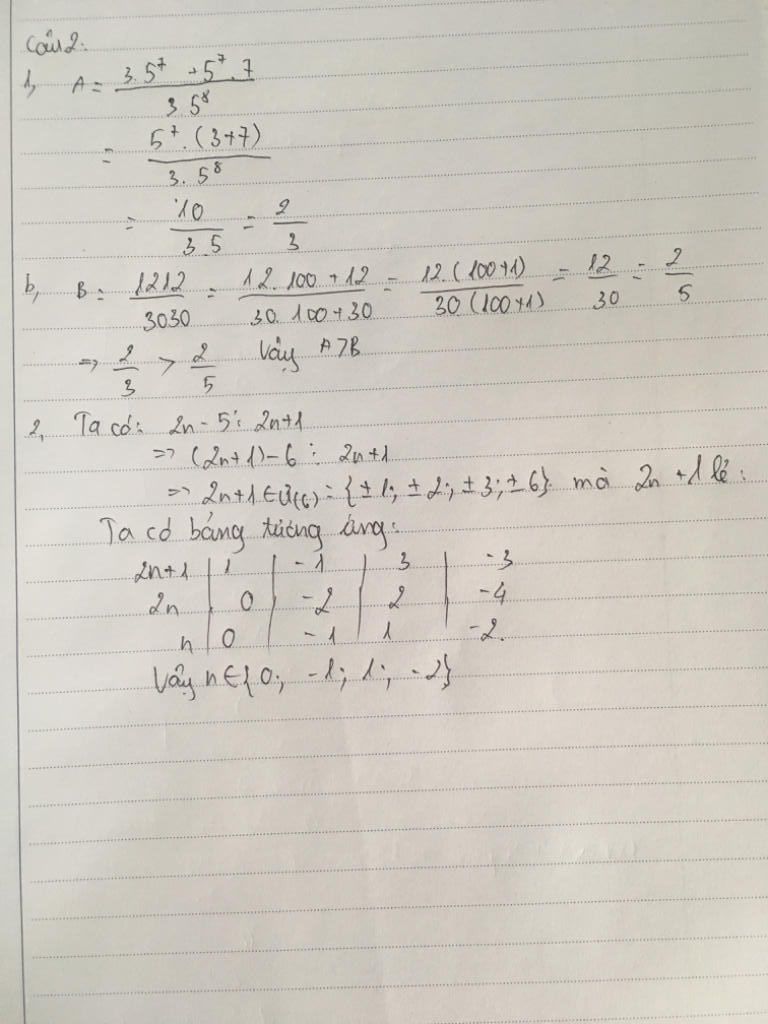 Câu 2:
1, A = (3.5⁷ + 5⁷.7)/(3.5⁸)
= (5⁷.(3+7))/(3.5⁸)
= 10/(3.5) = 2/3
b, B = 1212/3030 = (12.100+12)/(30.100+30) = (12.(100+1))/(30(100+1)) = 12/30 = 2/5
=> 2/3 > 2/5 Vậy A>B
2, Ta có: 2n - 5 ⋮ 2n+1
=> (2n+1)-6 ⋮ 2n+1
=> 2n+1 ∈ Ư(6) = {±1; ±2; ±3; ±6} mà 2n +1 lẻ:
Ta có bảng tương ứng:
2n+1 | 1 | -1 | 3 | -3
2n | 0 | -2 | 2 | -4
n | 0 | -1 | 1 | -2.
Vậy n∈{0; -1; 1; -2}